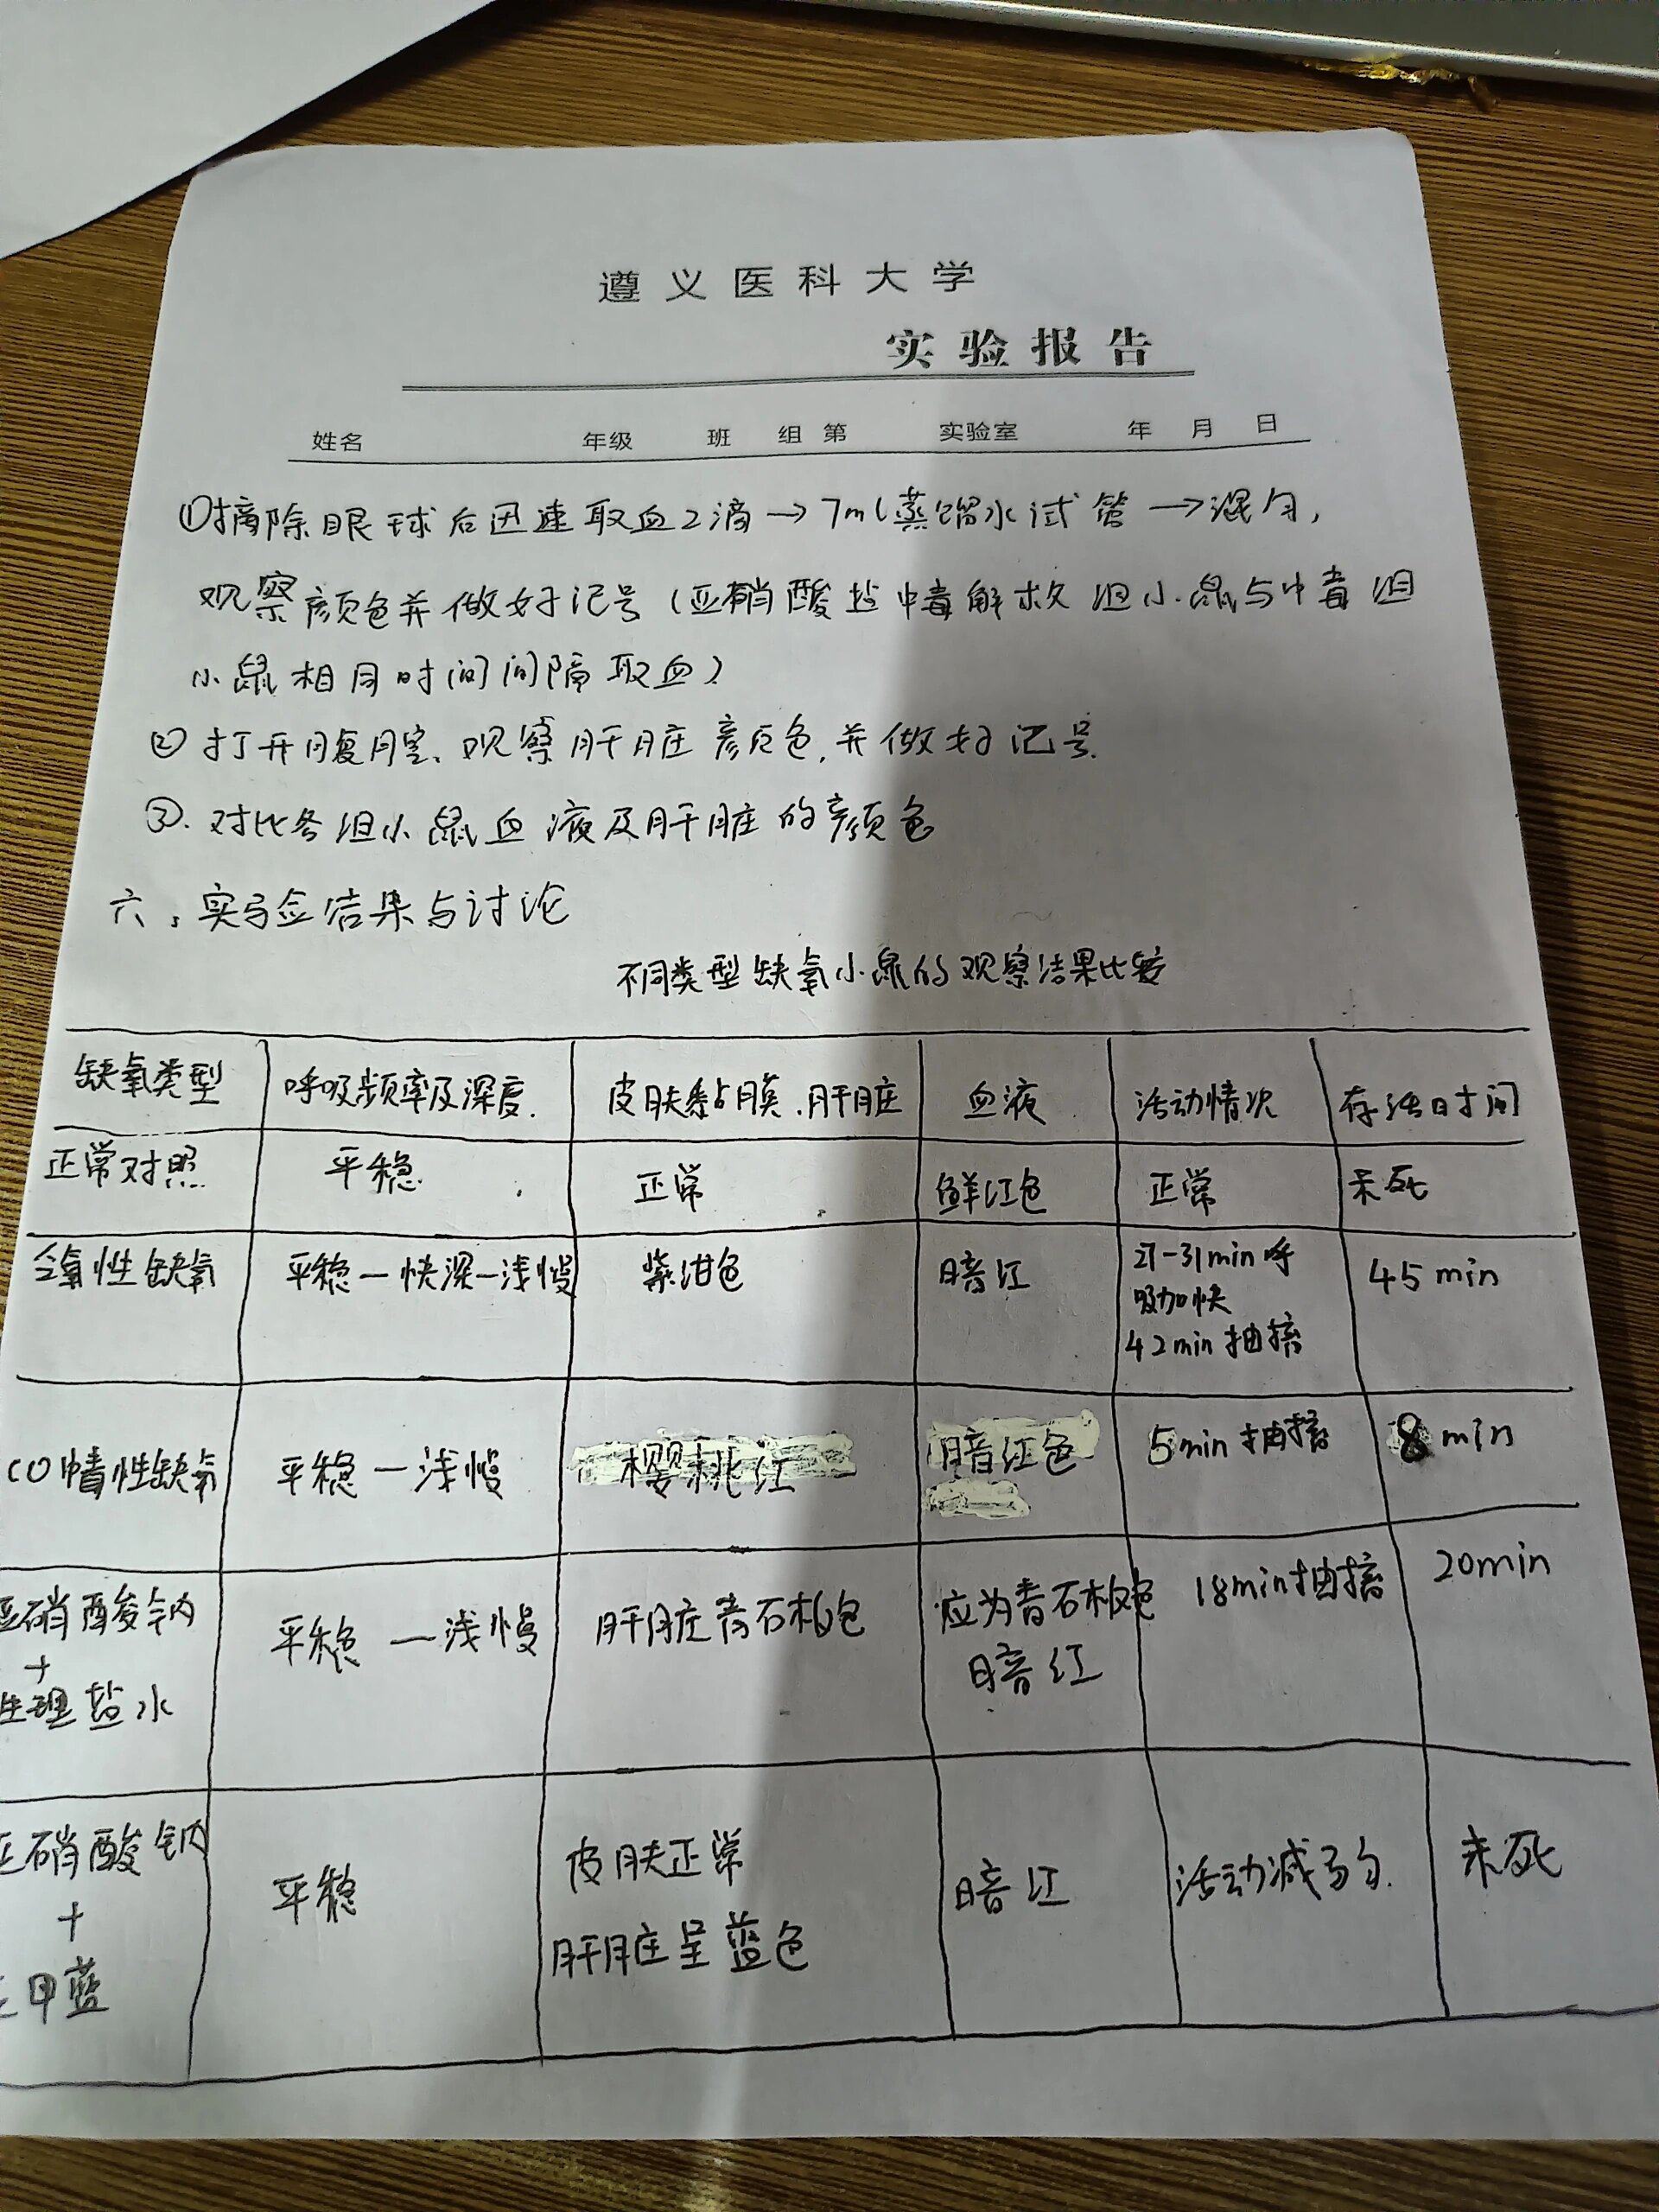 遵义医科大学
实验报告
姓名 年级 班 组 第 实验室 年 月 日
①摘除眼球后迅速取血2滴→7ml蒸馏水试管→混匀,
观察颜色并做好记号(亚硝酸盐中毒解救组小鼠与中毒组
小鼠相同时间间隔取血)
② 打开腹腔、观察肝脏颜色,并做好记号.
③. 对比各组小鼠血液及肝脏的颜色
六、实验结果与讨论
不同类型缺氧小鼠的观察结果比较
缺氧类型 呼吸频率及深度. 皮肤黏膜、肝脏 血液 活动情况 存活时间
正常对照 平稳 正常 鲜红色 正常 未死
乏氧性缺氧 平稳—快深—浅慢 紫绀色 暗红 21-31min呼 45min
吸加快
42min抽搐
CO中毒性缺氧 平稳—浅慢 樱桃红 暗红色 5min抽搐 8min
亚硝酸钠 平稳—浅慢 肝脏青石板色 应为青石板色 18min抽搐 20min
+ 暗红
生理盐水
亚硝酸钠 平稳 皮肤正常 暗红 活动减弱. 未死
+ 肝脏呈蓝色
甲蓝